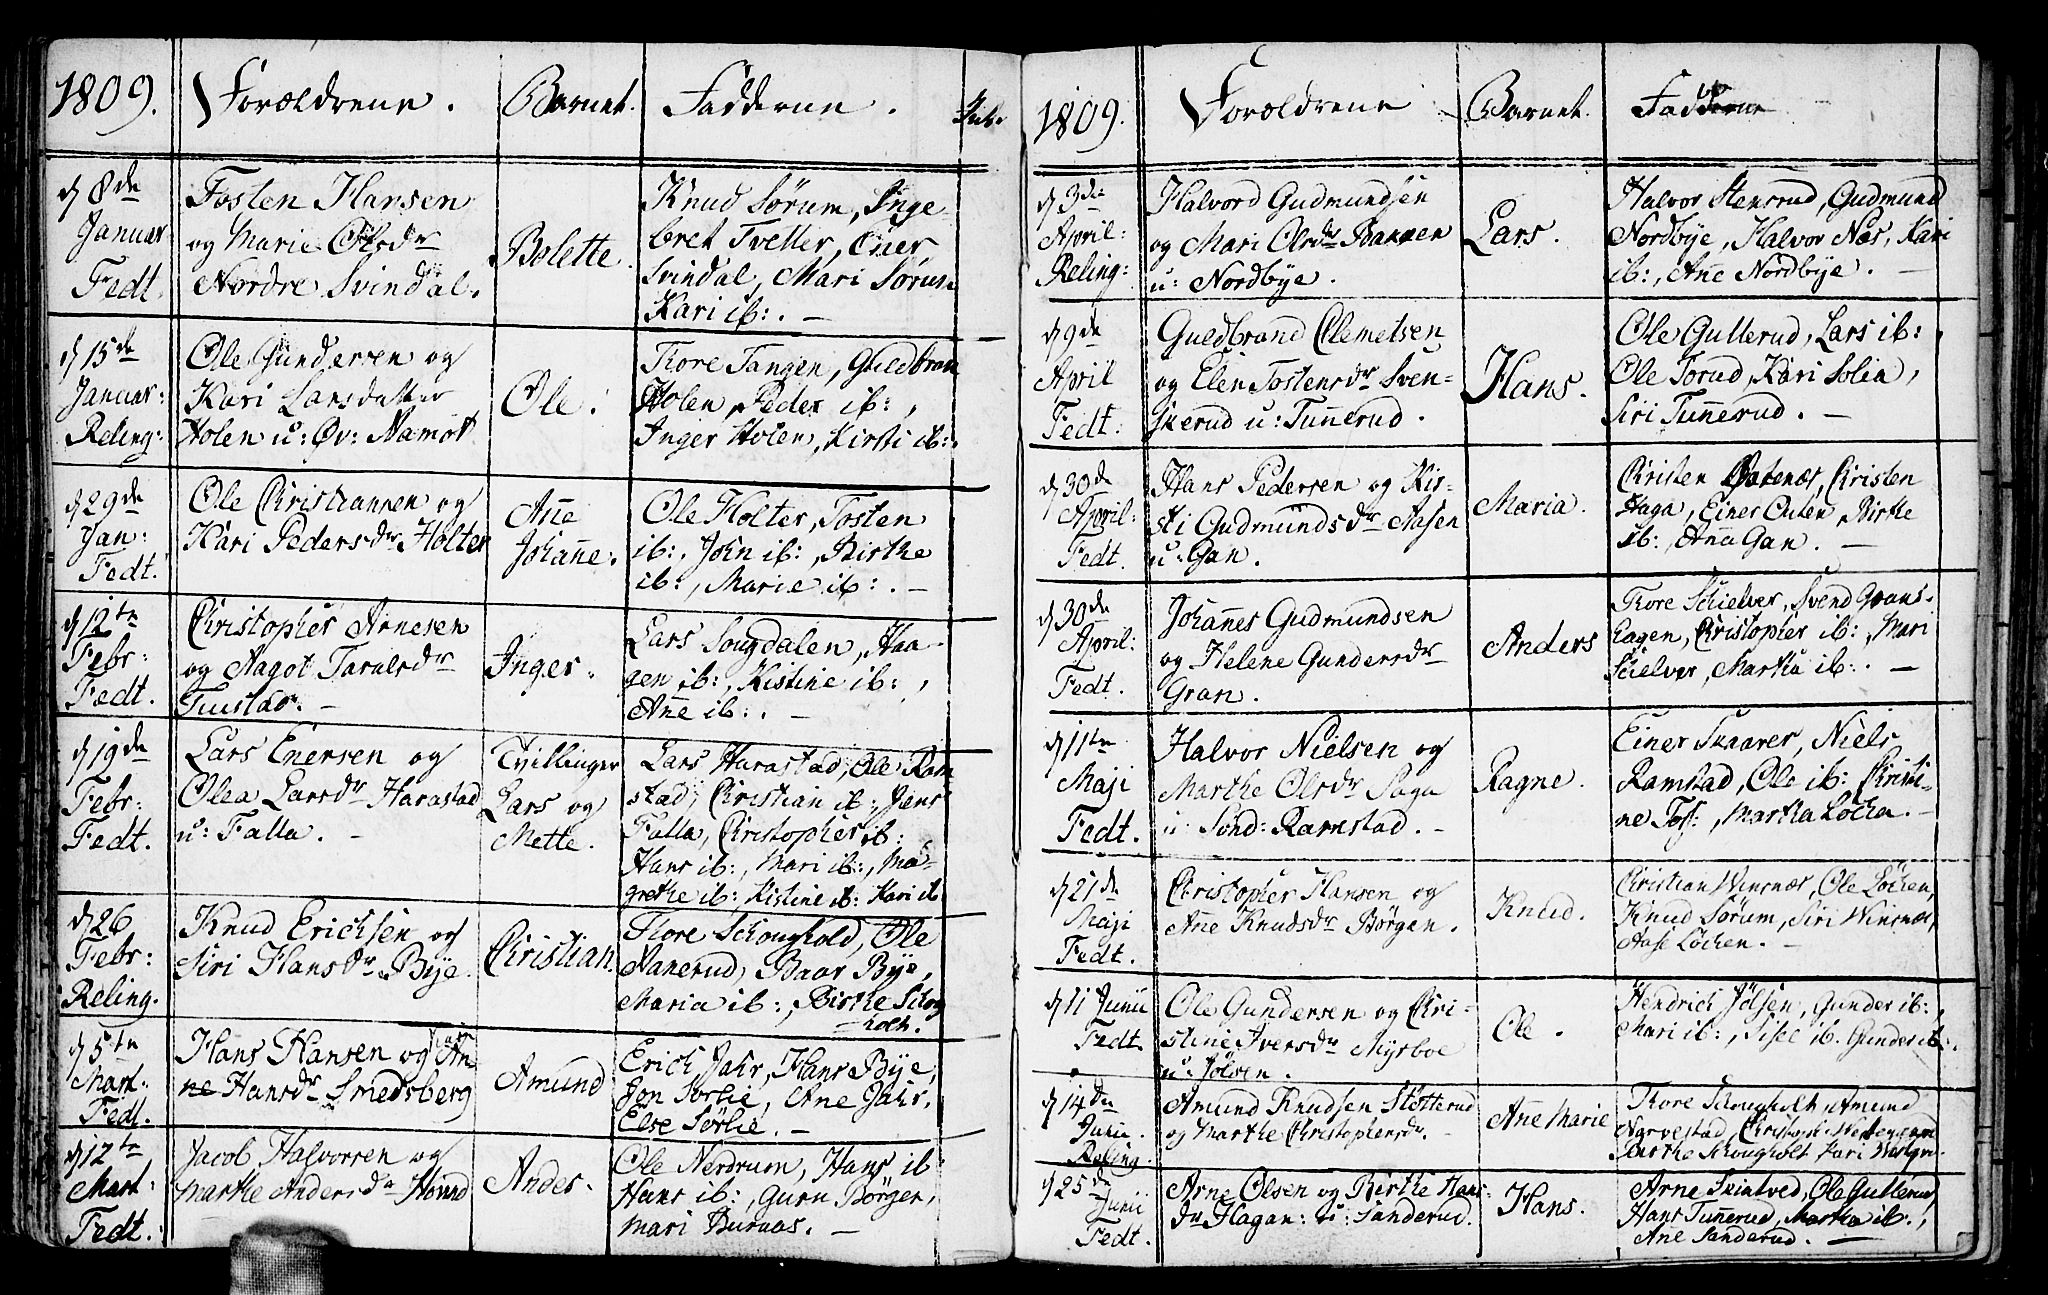 1809. Forældrene. Barnet. Fadderne.
d 8de Januar Fedt.
Tosten Hansen
og Marie Olsdr
Nordre Svindal.
Bolette.
Knud Sørum, Inge-
bret Tvetter, Einer
Svindal, Mari Sørum
Kari ib:. —
d 15de Januar: Reling:
Ole Gundersen og
Kari Larsdatter
Holen u: Øv: Namot
Ole.
Tore Tangen, Guldbran
Holen, Peder ib:,
Inger Holen, Kirsti ib:.
d 29de Jan: Fedt.
Ole Christiansen og
Kari Pedersdr Holter
Ane
Johane.
Ole Holter, Tosten
ib:, John ib:, Birthe
ib:, Marie ib:. —
d 12te Febr: Fedt.
Christopher Arnesen
og Aagot Taralsdr
Tuustad. —
Inger.
Lars Sougdalen, Haa-
gen ib:, Kistine ib:,
Ane ib:. —
d 19de Febr: Fedt.
Lars Enersen og
Olea Larsdr Harastad
u: Falla. —
Tvillinger
Lars og
Mette.
Lars Harastad, Ole Ram
stad, Christian ib:, Jens
Falla, Christopher ib:
Hans ib:, Mari ib:, Ma-
grethe ib:, Kistine ib: Kari ib
d 26 Febr: Reling.
Knud Erichsen og
Siri Hansdr Bye.
Christian.
Tore Schougholt, Ole
Hanerud, Baar Bye,
Maria ib:, Birthe Schog
holt.
d 5te Mart: Fedt.
Hans Hansen og An
ne Hansdr Smedsberg
Amund
Erich Jahr, Hans Bye,
Jon Sørlie, Ane Jahr,
Else Sørlie. —
d 12te Mart: Fedt.
Jacob Halvorsen og
Marthe Andersdr Hønd
Andes.
Ole Nerdrum, Hans ib
Hans ib:, Guru Børger,
Mari Buraas. —
1809. Forældrene Barnet. Fadderne
d 3de April: Reling:
Halvord Gudmundsen
og Mari Olsdr Bakken
u: Nordbye.
Lars.
Halvor Stensrud, Gudmund
Nordbye, Halvor Næs, Kari
ib:, Ane Nordbye. —
d 9de April Fedt.
Guldbrand Clemetsen
og Elen Tostensdr Sven-
skerud u: Tunnerud.
Hans.
Ole Gullerud, Lars ib:,
Ole Torud, Kari Solia,
Siri Tunnerud. —
d 30de April: Fedt.
Hans Pedersen og Kis-
ti Gudmundsdr Aasen
u: Gan.
Maria.
Christen Østenæs, Christen
Haga, Einer Outen, Birthe
ib:, Ana Gan. —
d 30de April: Fedt.
Johannes Gudmundsen
og Helene Gundersdr
Gran.
Anders
Tore Schielver, Svend Grans-
hagen, Christopher ib:, Mari
Schielver, Martha ib:. —
d 11te Maji Fedt.
Halvor Nielsen og
Marthe Olsdr Saga
u: Sønd: Ramstad. -
Ragne.
Einer Skaarer, Niels
Ramstad, Ole ib: Christi-
ne Tos:, Martha Løcha. -
d 21de Maji Fedt.
Christopher Hansen og
Ane Knudsdr Børgen.
Knud.
Christian Winsnæs, Ole Løchen,
Knud Sørum, Siri Winsnæs,
Aase Løchen. —
d 11 Junii Fedt.
Ole Gundersen og Chri-
stine Iversdr Myrboe
u: Jølsen.
Ole.
Hendrich Jølsen, Gunder ib:,
Mari ib:, Sisel ib. Gunder ib:.
d 14de Junii. Reling.
Amund Knudsen Støtterud
og Marthe Christophersdr. —
Ane Marie
Tore Schougholt, Amund
Narvestad,
Birthe Schougholt
d 25de Junii Fedt.
Arne Olsen og Birthe Hans-
dr Hagan: u: Sanderud.
Hans.
Arne Skintved, Ole Gullerud,
Hans Tunnerud, Martha ib:,
Ane Sanderud. —